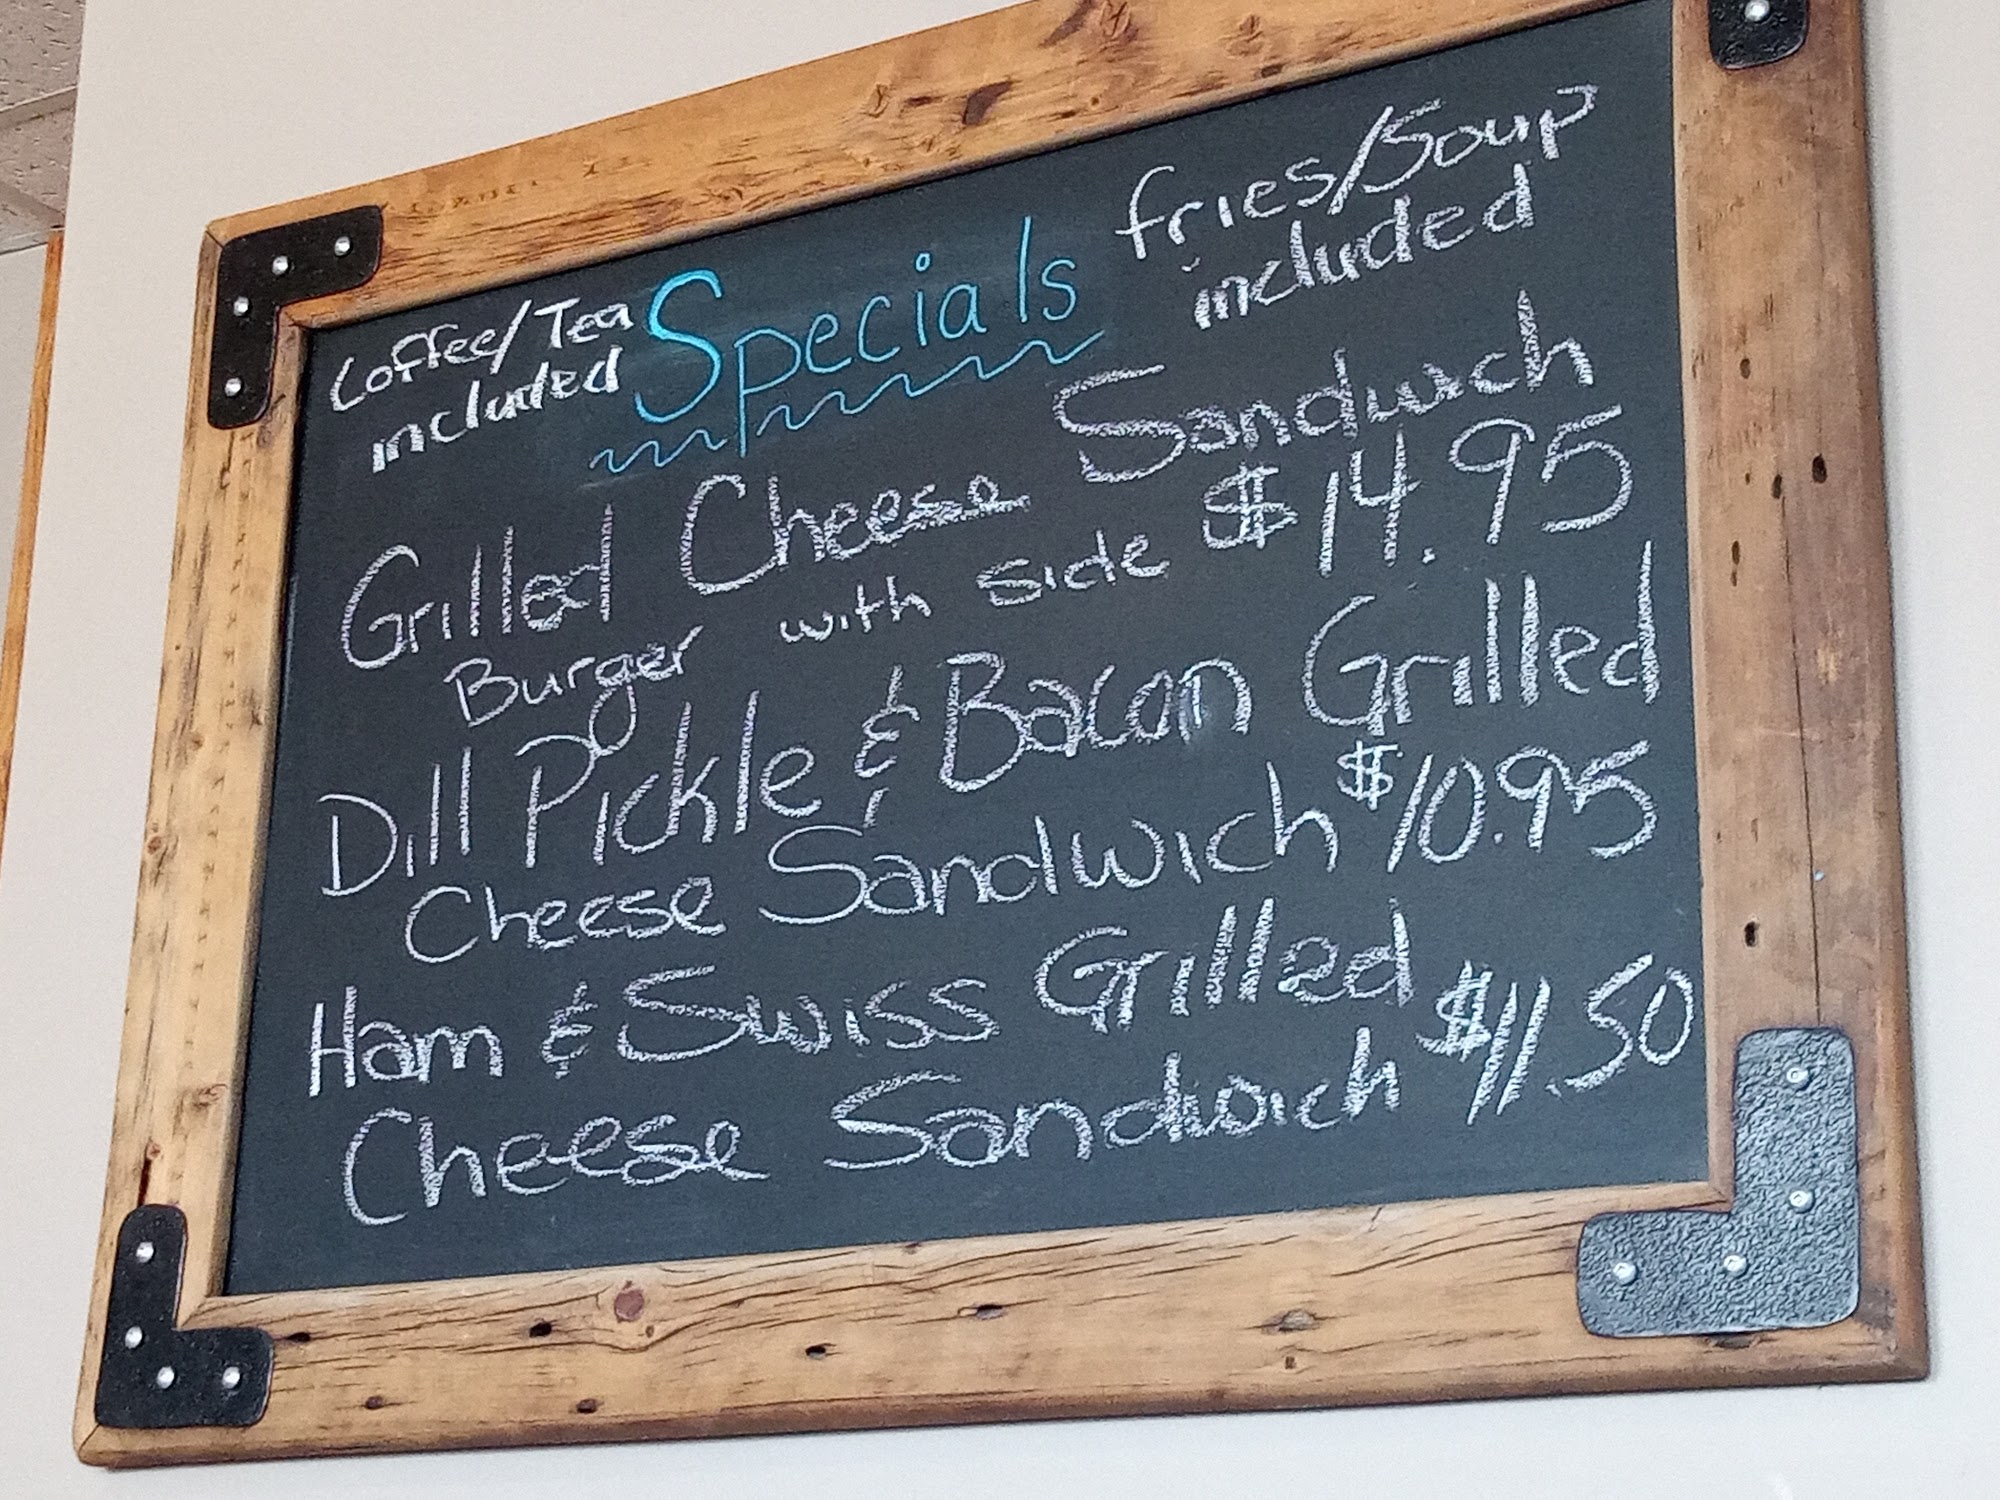 Coffee/Tea
included
Specials
fries/Soup
included
Grilled Cheese Sandwich
Burger with side $14.95
Dill Pickle & Bacon Grilled
Cheese Sandwich $10.95
Ham & Swiss Grilled
Cheese Sandwich $11.50